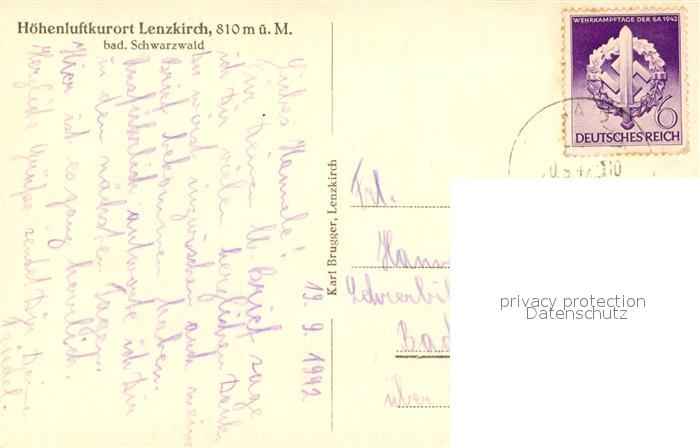 Höhenluftkurort Lenzkirch, 810 m ü. M.
bad. Schwarzwald
19. 9. 1942
Liebes Hannele!
Für Deinen lb. Brief sage
ich Dir vielen herzlichen Dank.
Du wirst inzwischen auch meinen
Brief bekommen haben.
Ausführlich antworte ich Dir
in den nächsten Tagen.
Hier ist es ganz herrlich.
Herzliche Grüße sendet Dir Deine
Friedel.
Karl Brugger, Lenzkirch
WEHRKAMPFTAGE DER SA 1942
6
DEUTSCHES REICH
Frl.
Hann
Bad
über
privacy protection
Datenschutz